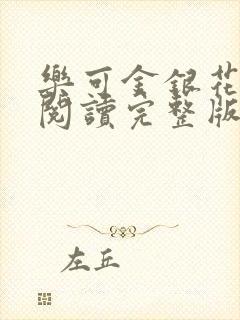 樂可金銀花
閱讀完整版
左丘